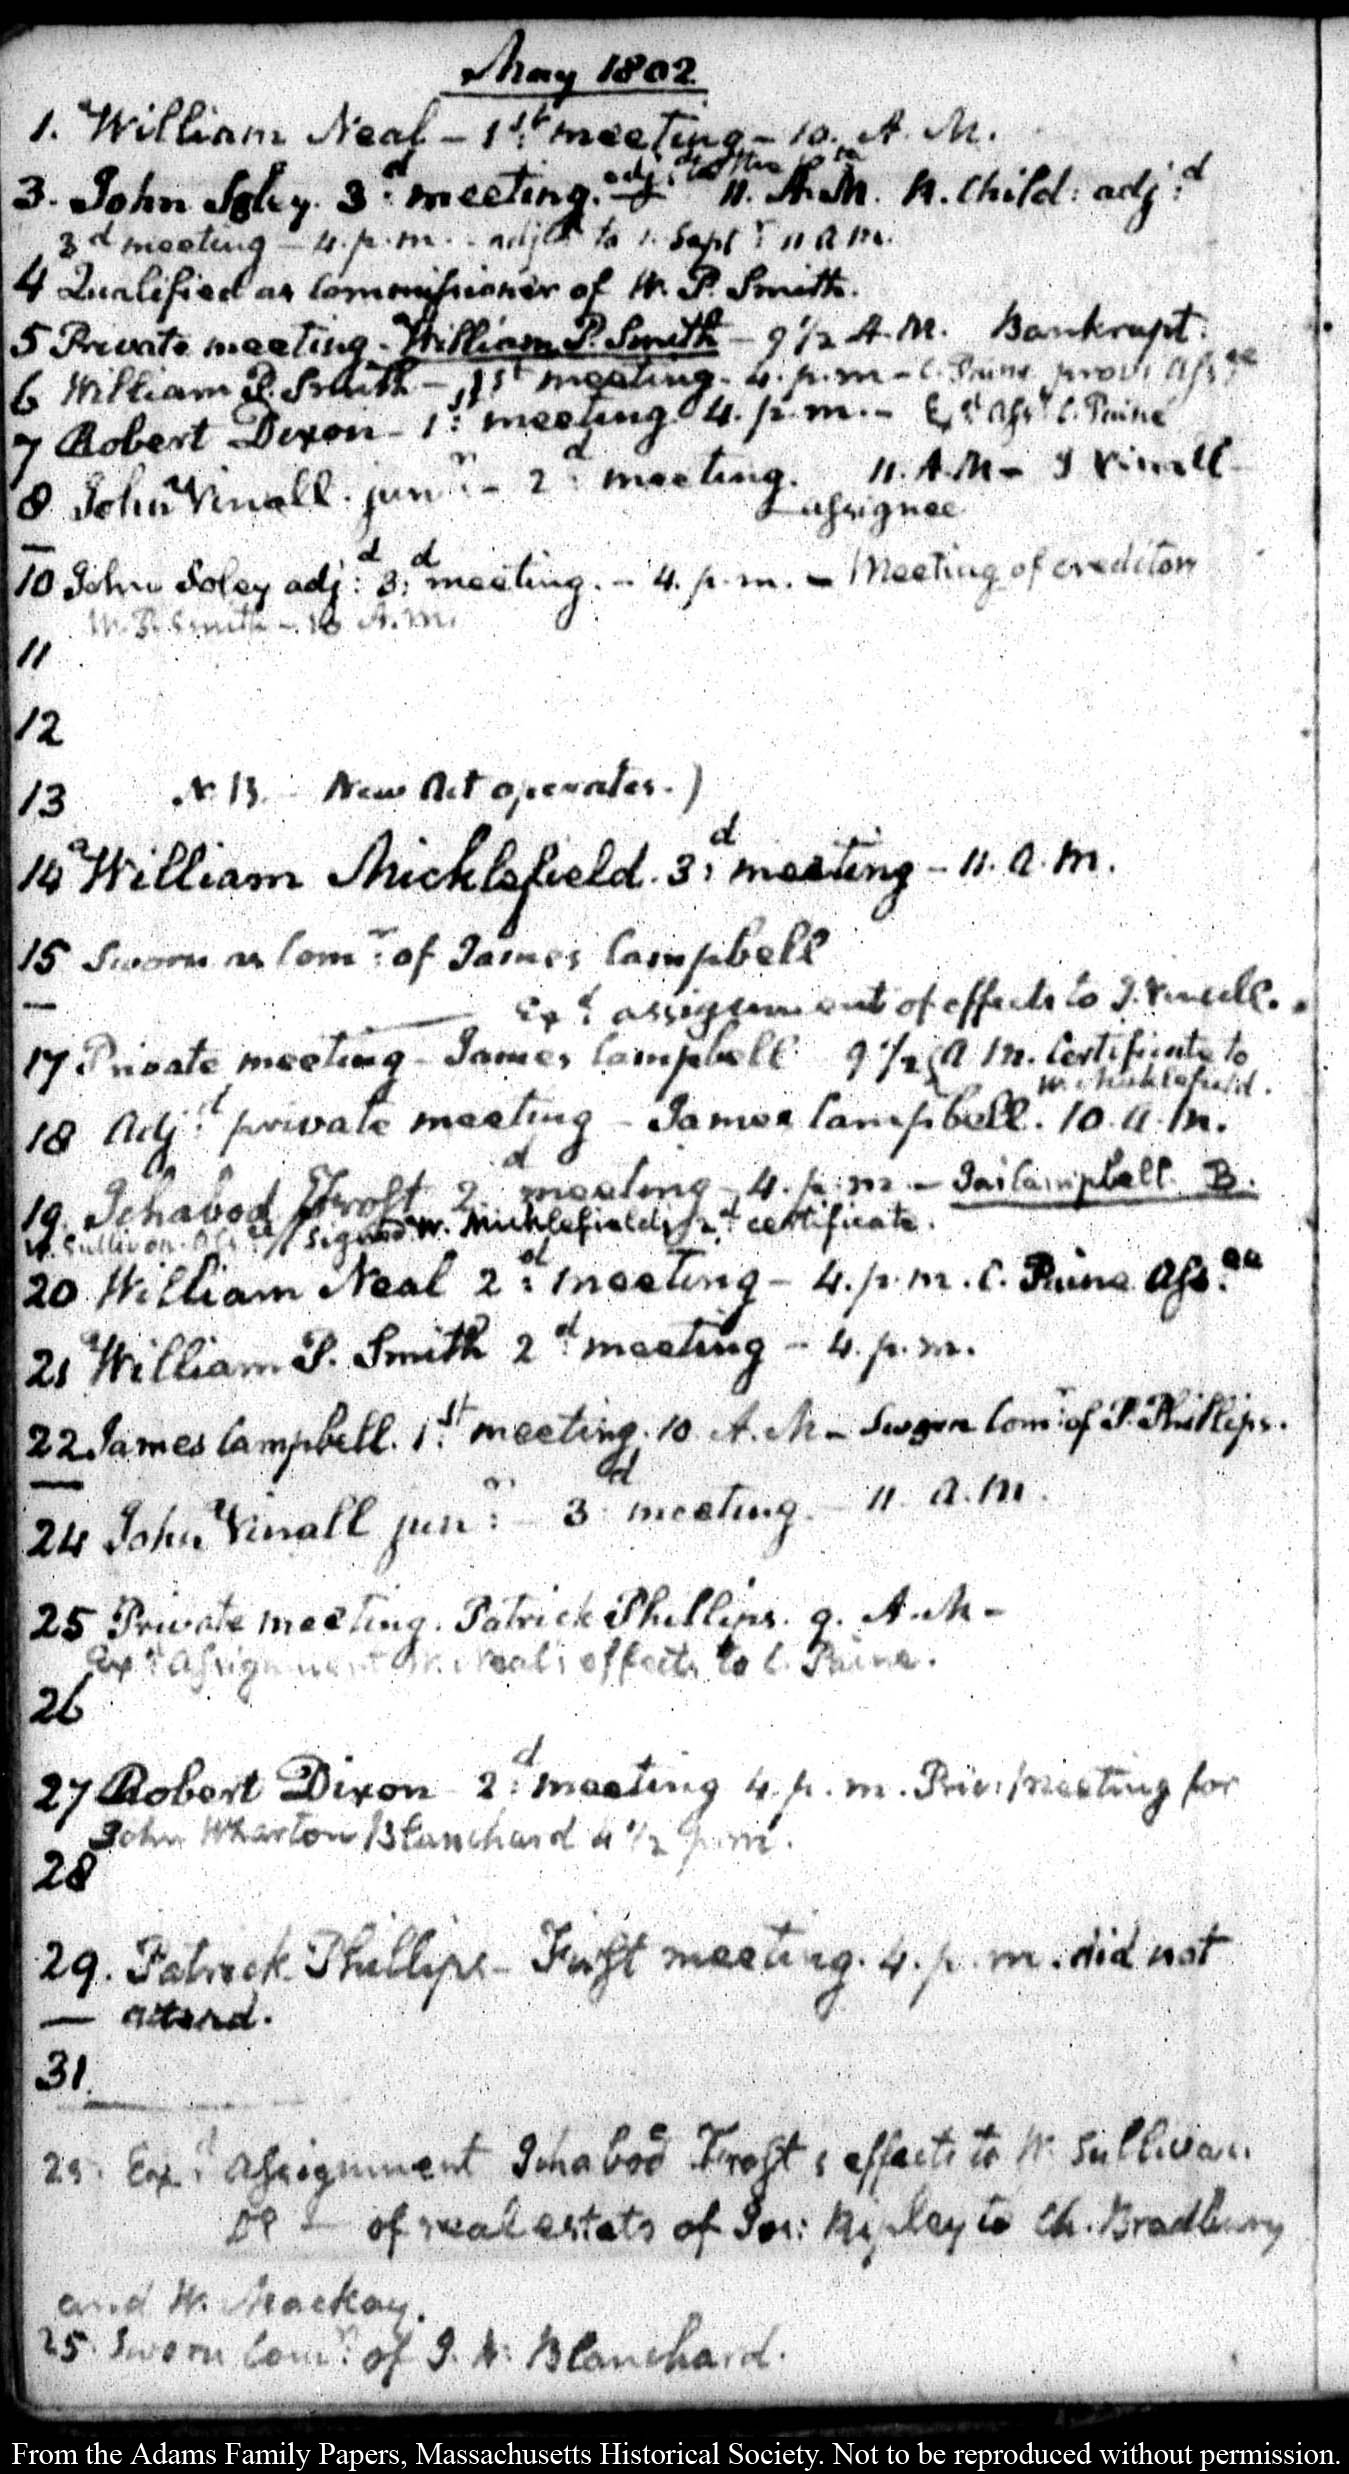 May 1802
1. William Neal – 1st meeting – 10. A. M.
3. John Soley. 3d meeting. adjd to the 10th 11. A.M. R. Child: adj:d
3d meeting – 4. p. m. – adjd to 1. Sept. 11 a m.
4 Qualified as Commissioner of W. P. Smith.
5 Private meeting – William P. Smith – 9 1/2 A. M. Bankrupt.
6 William P. Smith – 1st meeting – 4. p. m – C. Paine prov: Assee
7 Robert Dixon – 1st meeting 4. p. m. – Exd Asst C. Paine
8 John Vinall. junr. – 2d meeting. 11. A. M – J Vinall
assignee
10 John Soley adj:d 3:d meeting. – 4. p. m. – Meeting of creditors
W. P. Smith – 10 A. m.
11
12
13 N. B. New Act operates.)
14 William Micklefield. 3d meeting – 11. a. m.
15 Sworn as Comr: of James Campbell
Exd assignment of effects to J. Vinall.
17 Private meeting – James Campbell 9 1/2 a m. Certificate to
W. Micklefield.
18 Adj:d private meeting – James Campbell. 10. a. m.
19. Ichabod Frost 2d meeting – 4. p. m. – Jas Campbell. B.
W. Sullivan. Assee // signed W. Micklefield's 2d certificate.
20 William Neal 2:d meeting – 4. p. m. C. Paine Ass:ee
21 William P. Smith 2d meeting – 4. p. m.
22 James Campbell. 1st meeting. 10 A. M – Sworn Comr: of P. Phillips.
24 John Vinall junr: – 3d meeting – 11 a. m.
25 Private meeting. Patrick Phillips. 9. A. M –
Exd Assignment W. Neal's effects to C. Paine.
26
27 Robert Dixon 2:d meeting 4. p. m. Priv: meeting for
John Wharton Blanchard 4 1/2 p. m.
28
29. Patrick Phillips – First meeting. 4. p. m. did not
attend.
31.
Exd Assignment Ichabod Frost s effects to W. Sullivan.
Do – of real estate of Jos: Ripley to Ch. Bradbury
and W. Mackay.
25. Sworn Comr: of J. W. Blanchard.
From the Adams Family Papers, Massachusetts Historical Society. Not to be reproduced without permission.